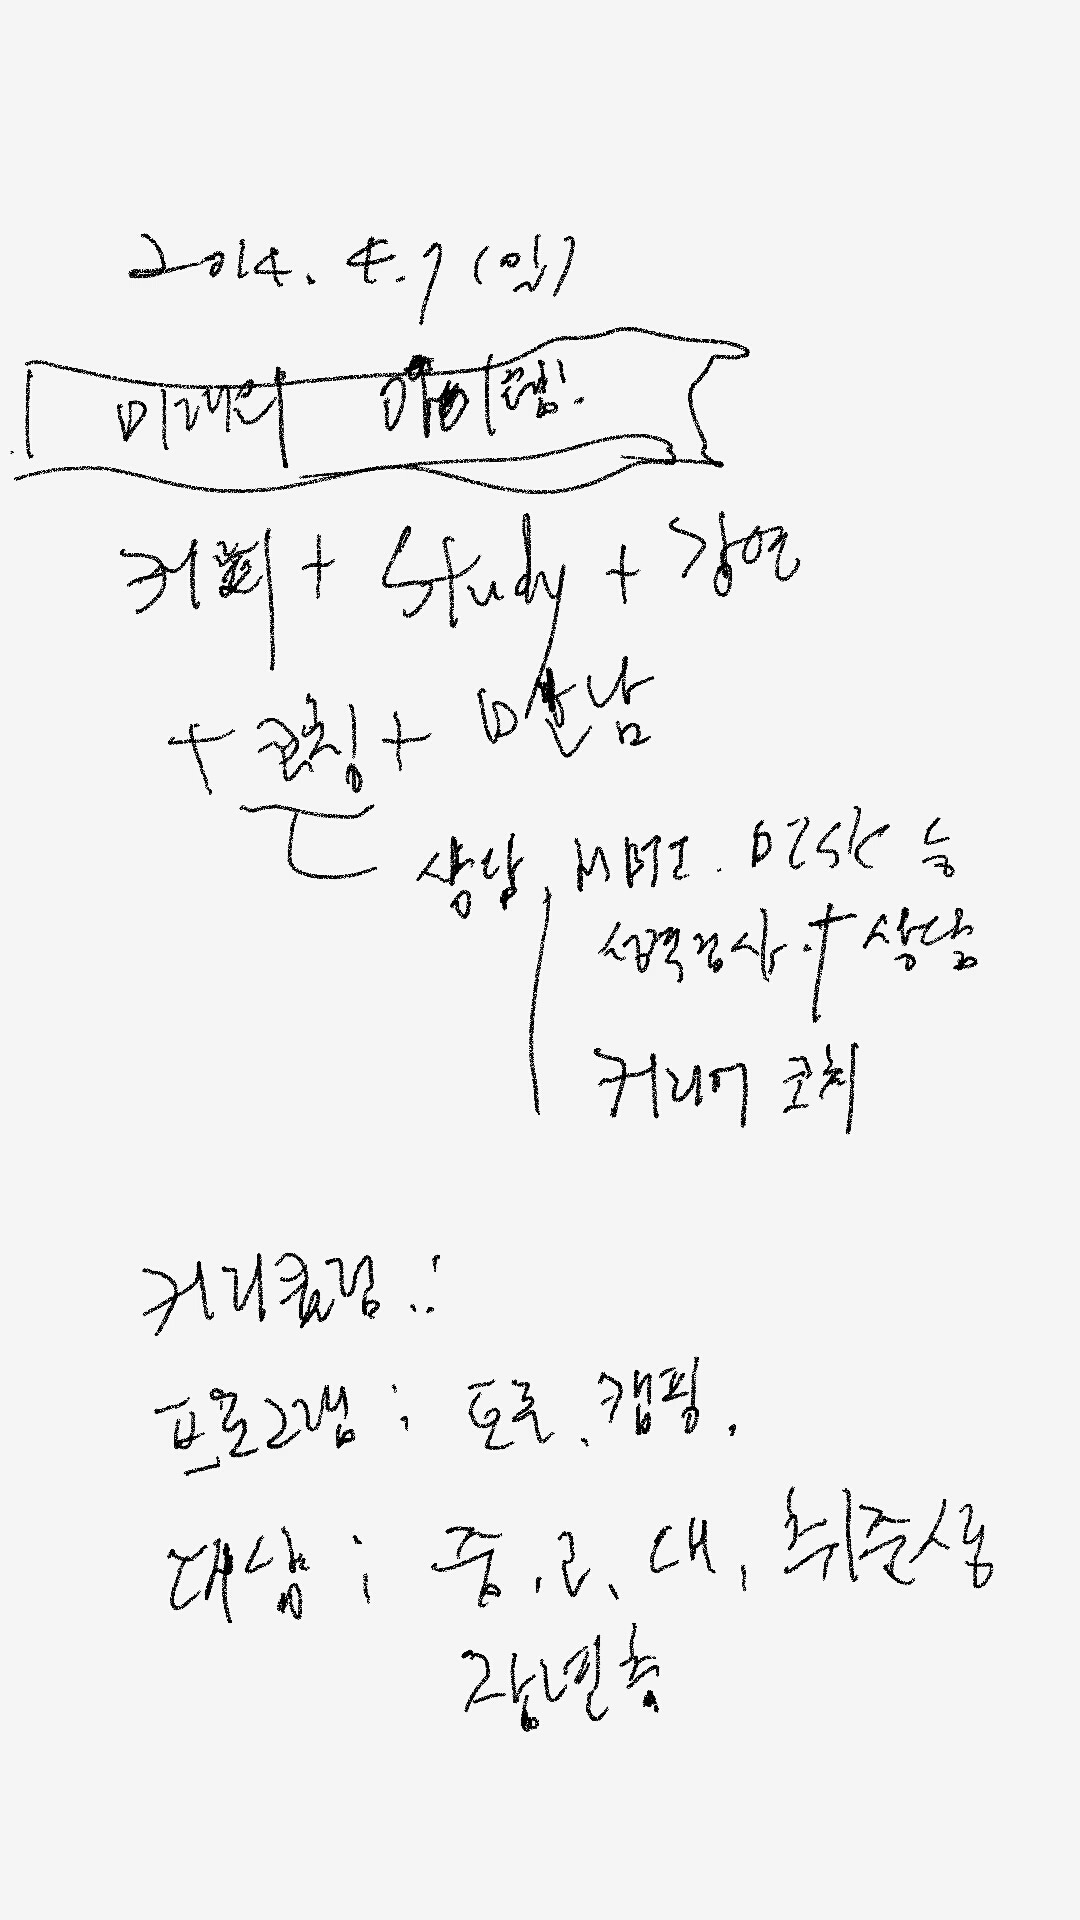 2014. 4. 9 (일)
미래의
커피 + Study + 강연
+ 코칭 + 만남
상담, MBTI. DISK 등
성격검사 + 상담
커리어 코치
커리큘럼 :
프로그램 : 토론, 캠핑.
대상 ; 중, 고, 대, 취준생
장년층